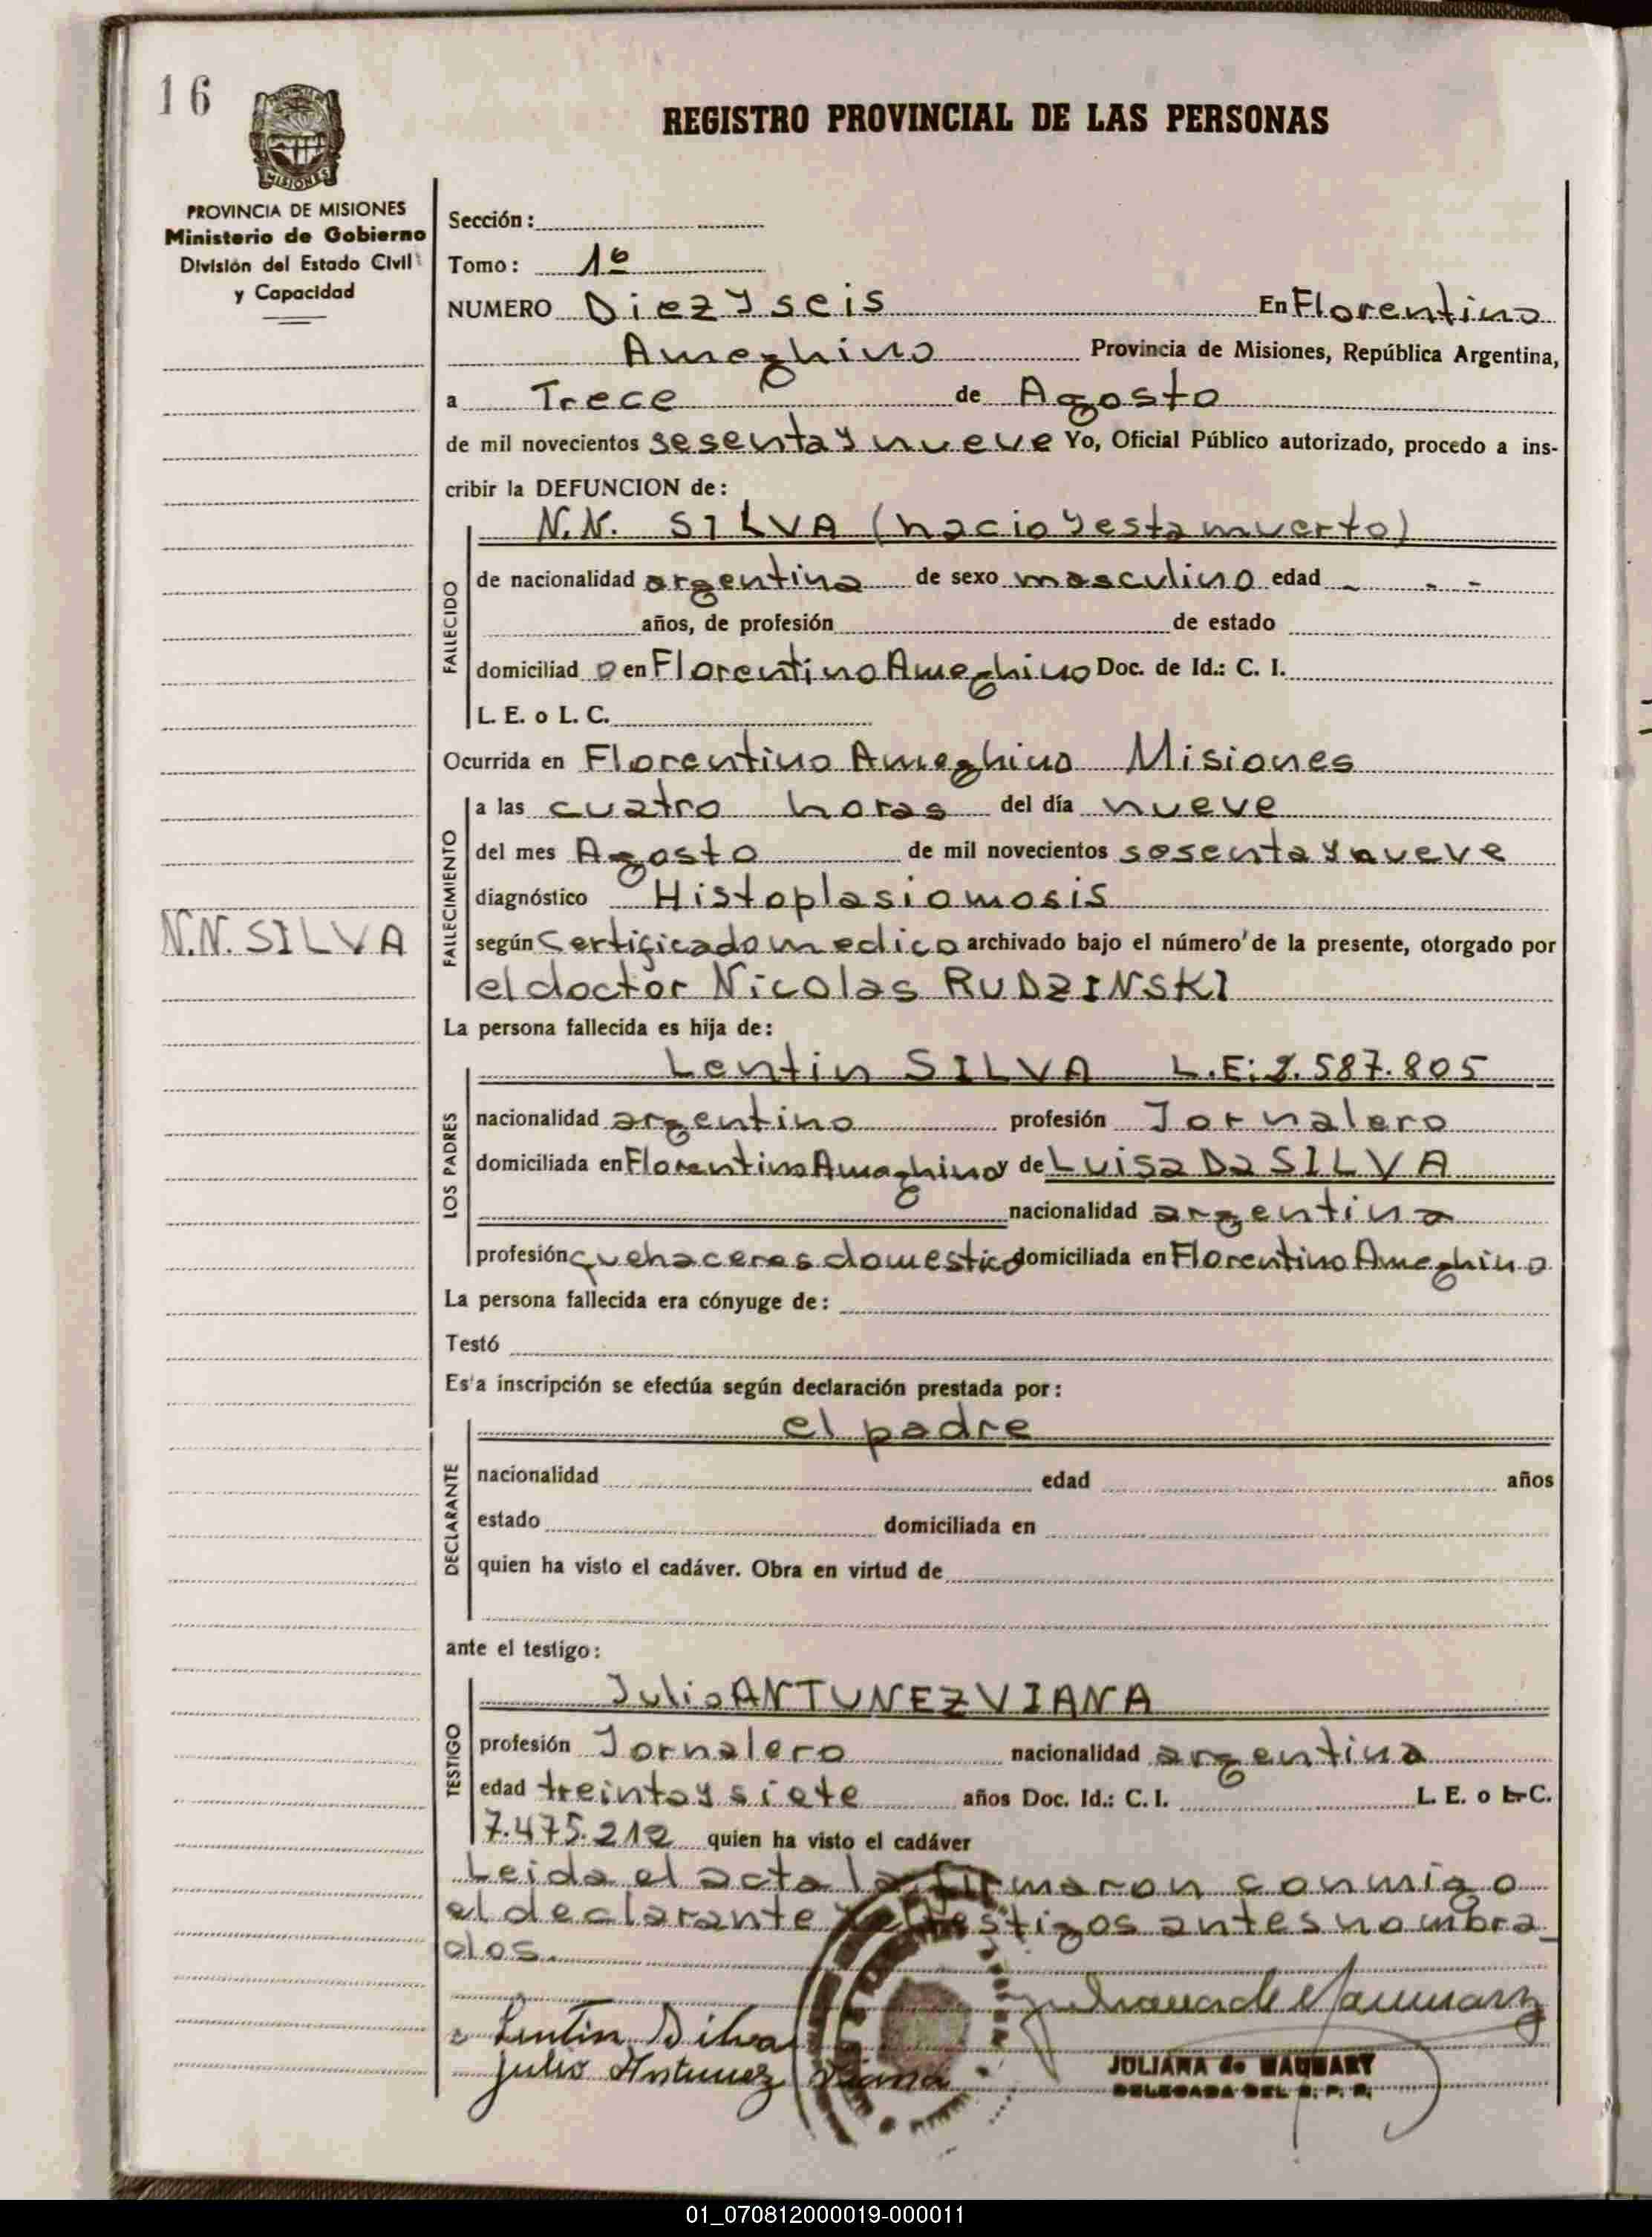 16
MISIONES
REGISTRO PROVINCIAL DE LAS PERSONAS
PROVINCIA DE MISIONES
Ministerio de Gobierno
División del Estado Civil
y Capacidad
N.N. SILVA
Sección:
Tomo: 1º
NUMERO Diez y seis En Florentino
Ameghino Provincia de Misiones, República Argentina,
a Trece de Agosto
de mil novecientos sesenta y nueve Yo, Oficial Público autorizado, procedo a ins-
cribir la DEFUNCION de:
N.N. SILVA (nacio y esta muerto)
FALLECIDO
de nacionalidad argentina de sexo masculino edad - - -
años, de profesión de estado
domiciliad o en Florentino Ameghino Doc. de Id.: C. I.
L. E. o L. C.
Ocurrida en Florentino Ameghino Misiones
FALLECIMIENTO
a las cuatro horas del día nueve
del mes Agosto de mil novecientos sesenta y nueve
diagnóstico Histoplasiomosis
según Certificado medico archivado bajo el número de la presente, otorgado por
el doctor Nicolas RUDZINSKI
La persona fallecida es hija de:
LOS PADRES
Lentin SILVA L.E: 587.805
nacionalidad argentino profesión Jornalero
domiciliada en Florentino Ameghino y de Luisa Da SILVA
nacionalidad argentina
profesión quehaceres domestico domiciliada en Florentino Ameghino
La persona fallecida era cónyuge de:
Testó
Es'a inscripción se efectúa según declaración prestada por:
el padre
DECLARANTE
nacionalidad edad años
estado domiciliada en
quien ha visto el cadáver. Obra en virtud de
ante el testigo:
TESTIGO
Julio ANTUNEZ VIANA
profesión Jornalero nacionalidad argentina
edad treinta y siete años Doc. Id.: C. I. L. E. o L. C.
7.475.212 quien ha visto el cadáver
Leida el acta la firmaron conmigo
el declarante y testigos antes nombra
dos.
Lentin Silva
Julio Antunez Viana
JULIANA de MAQUART
DELEGADA DEL R. P. P.
01_070812000019-000011